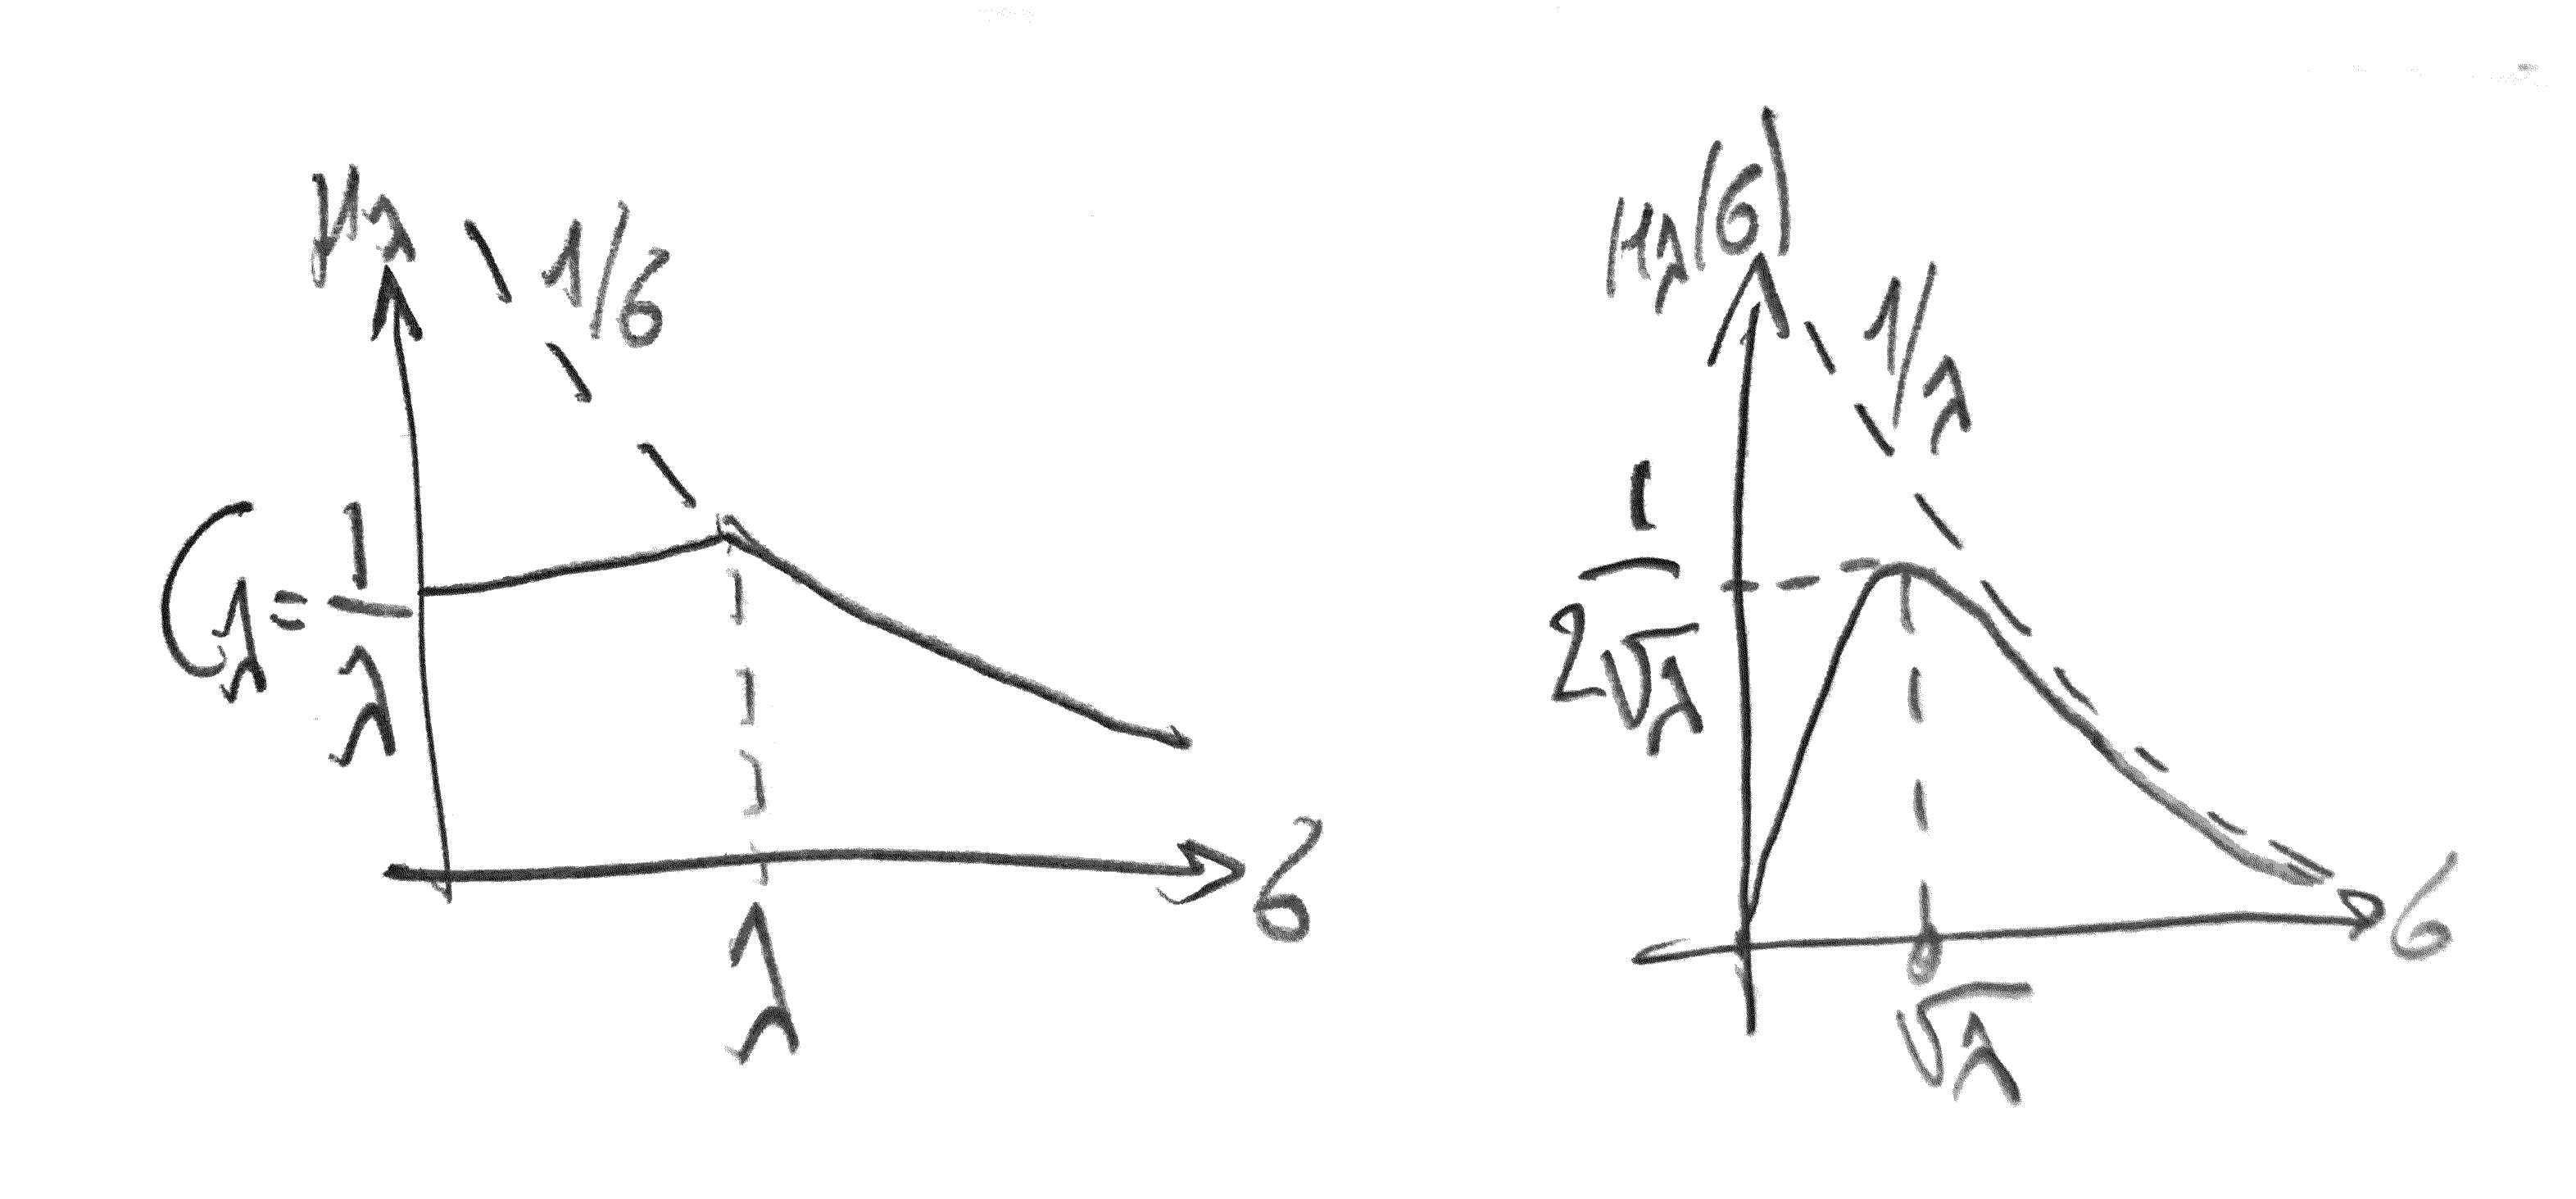 μ_λ
1/σ
C_λ = 1/λ
λ
σ
μ_λ(σ)
1/λ
1/(2√λ)
√λ
σ